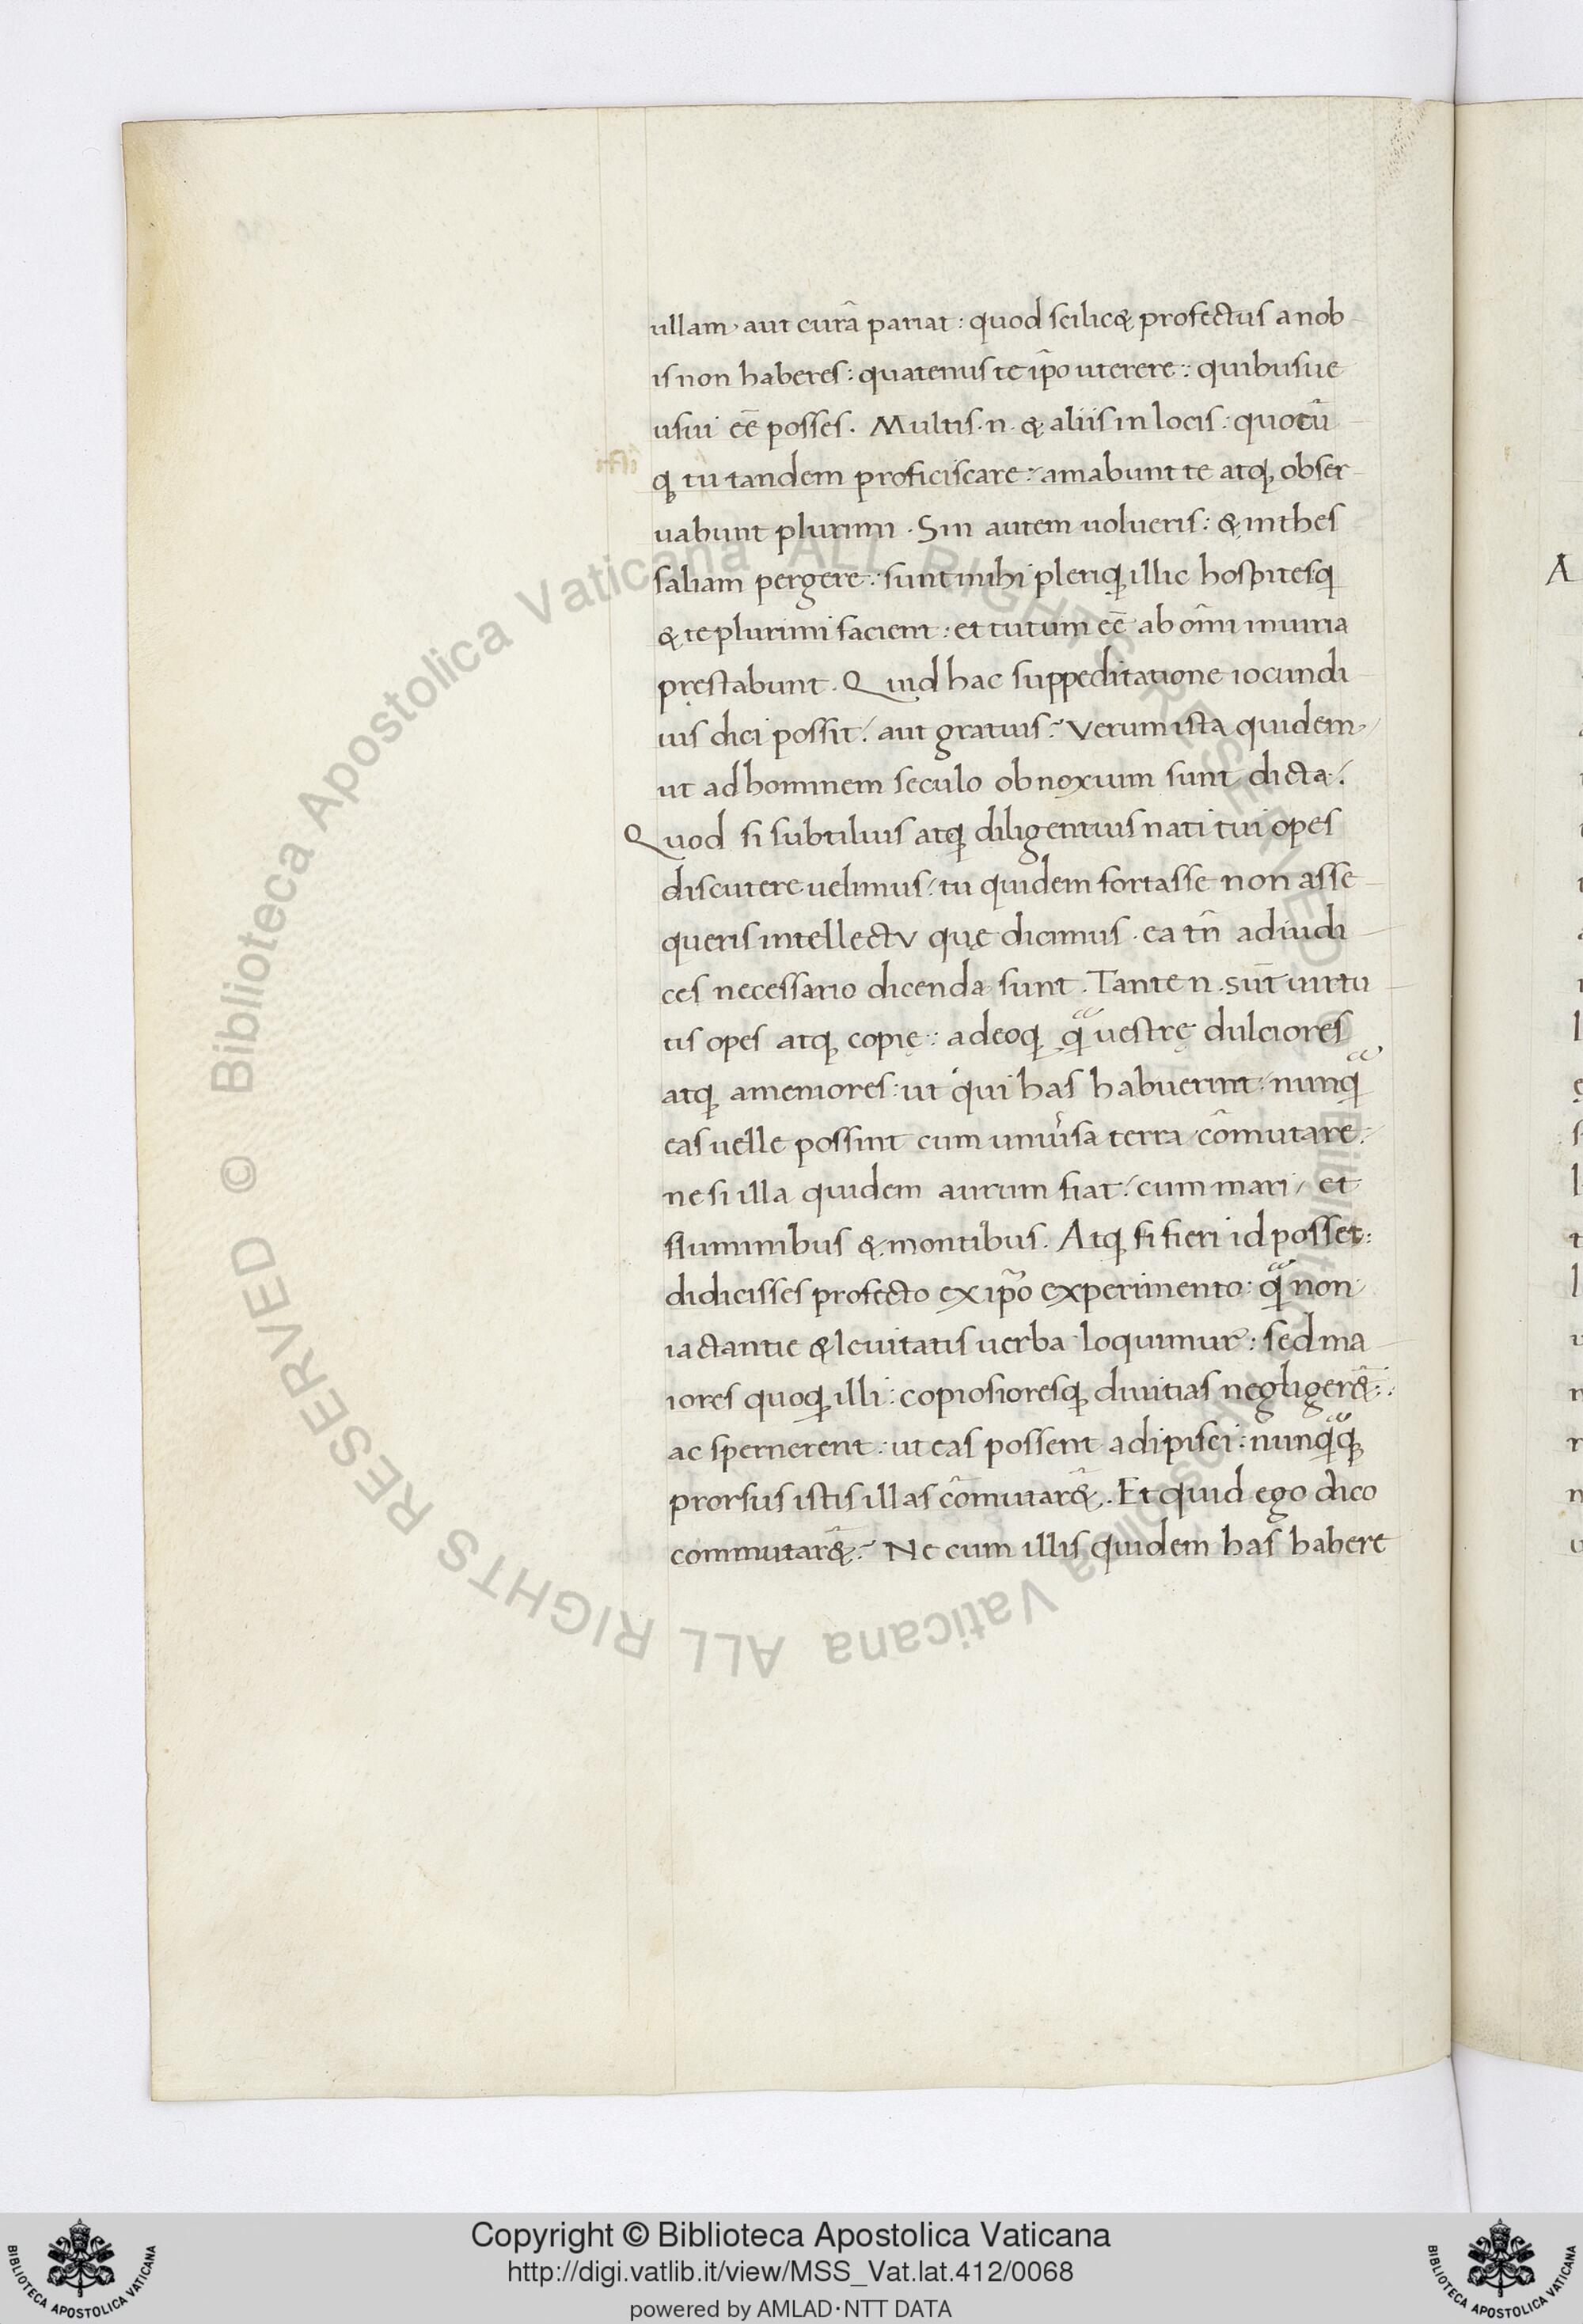 ullam · aut curā pariat : quod scilic& profectus a nob
is non haberes : quatenus te ip̄o uterere : quibusue
usui eē posses . Multis · n · & aliis in locis : quotū
q; tu tandem proficiscare : amabunt te atq; obser
uabunt plurimi · Sin autem uolueris : & in thes
saliam pergere : sunt mihi pleriq; illic hospitesq;
& te plurimi facient : et tutum eē ab om̄i iniuria
pręstabunt . Quid hac suppeditatione iocundi
ius dici possit / aut gratius : Verum ista quidem /
ut ad hominem seculo obnoxium sunt dicta :
Quod si subtilius atq; diligentius nati tui opes
discutere uelimus / tu quidem fortasse non asse
queris intellectu quę dicimus · ea tn̄ ad iudi
ces necessario dicenda sunt . Tante n . sūt uirtu
tis opes atq; copię : adeoq; q̄ uestrę dulciores
atq; ameniores : ut qui has habuerint / nunq̄
eas uelle possint cum uniu̓sa terra cōmutare :
ne si illa quidem aurum fiat / cum mari / et
fluminibus & montibus . Atq; si fieri id posset :
didicisses profecto ex ip̄o experimento : q̄ non
iactantie & leuitatis uerba loquimur : sed ma
iores quoq; illi : copiosioresq; diuitias negliger&̄ :
ac spernerent : ut eas possent adipisci : nunq̄q;
prorsus istis illas cōmutar&̄ . Et quid ego dico
commutar&̄ : Ne cum illis quidem has habere
Copyright © Biblioteca Apostolica Vaticana
http://digi.vatlib.it/view/MSS_Vat.lat.412/0068
powered by AMLAD·NTT DATA
BIBLIOTECA APOSTOLICA VATICANA
BIBLIOTECA APOSTOLICA VATICANA
© Biblioteca Apostolica Vaticana ALL RIGHTS RESERVED
© Biblioteca Apostolica Vaticana ALL RIGHTS RESERVED